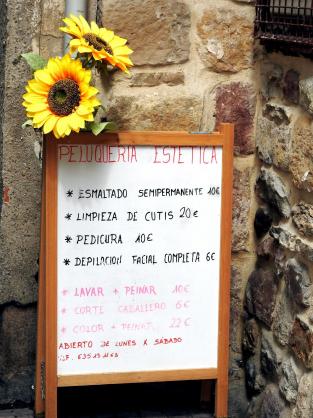 PELUQUERIA ESTETICA
* ESMALTADO SEMIPERMANENTE 10€
* LIMPIEZA DE CUTIS 20€
* PEDICURA 10€
* DEPILACION FACIAL COMPLETA 6€
* LAVAR + PEINAR 10€
* CORTE CABALLERO 6€
* COLOR + PEINAR 22€
ABIERTO DE LUNES A SÁBADO